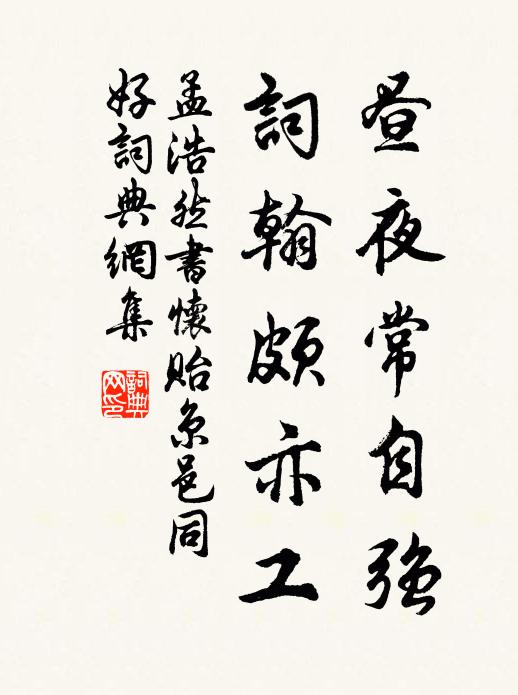 昼夜常自強
詞翰頗亦工
孟浩然書懷貽京邑同
好詞典網集
詞典
网印